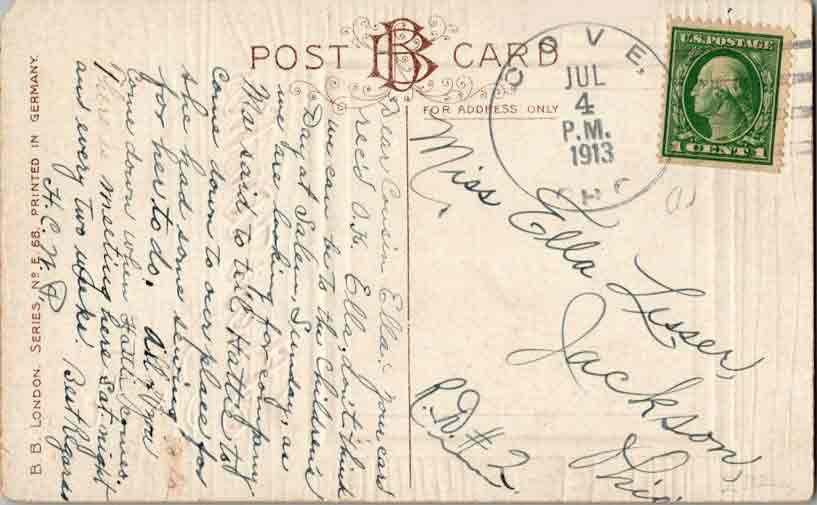 POST CARD
BB
FOR ADDRESS ONLY
Dear Cousin Ella: Your card
rec'd O.K. Ella, don't think
we can be to the Children's
Day at Salem, Sunday, as
we are looking for company
Ma said to tell Hattie to
come down to our place for
she had some sewing
for her to do. All of you
come down when Hattie comes.
There is meeting here Sat. night
and every two weeks. Best Regards
B B LONDON. SERIES, No E 68, PRINTED IN GERMANY.
COVE,
JUL
4
P.M.
1913
U.S. POSTAGE
1 CENT 1
Miss Ella Lesser,
Jackson,
Ohio
R.D. #2.